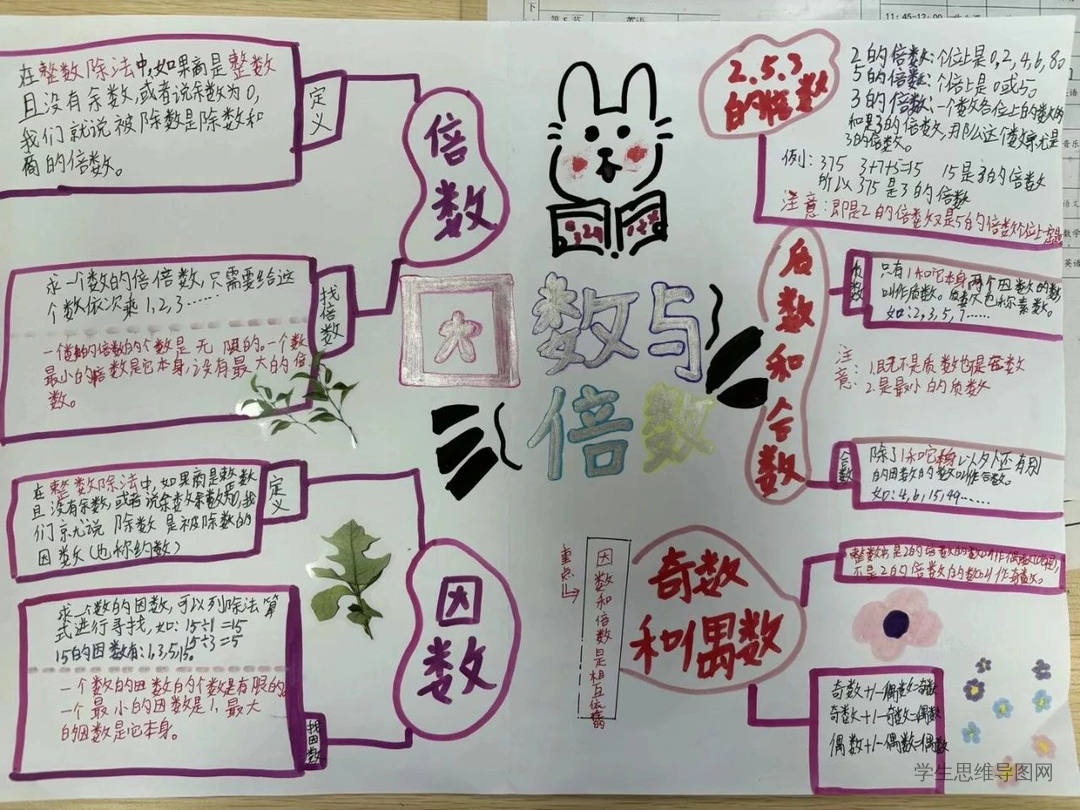 在整数除法中,如果商是整数
且没有余数,或者说余数为0,
我们就说被除数是除数和
商的倍数。
定义
倍数
求一个数的倍倍数,只需要给这
个数依次乘1,2,3……
找倍数
一个数的倍数的个数是无限的。一个数
最小的倍数是它本身,没有最大的倍
数。
在整数除法中,如果商是整数
且没有余数,或者说余数为0,我
们就说除数是被除数的
因数(也称约数)
定义
因数
求一个数的因数,可以列除法算
式进行寻找,如:15÷1=15
15÷3=5
15的因数有:1,3,5,15。
一个数的因数的个数是有限的
一个最小的因数是1,最大
的因数是它本身。
找因数
数与
倍数
重点
因数和倍数是相互依存的
2.5.3
的倍数
2的倍数:个位上是0,2,4,6,8。
5的倍数:个位上是0或5。
3的倍数:一个数各位上的数的
和是3的倍数,那么这个数就是
3的倍数。
例:375 3+7+5=15 15是3的倍数
所以375是3的倍数
注意:即是2的倍数又是5的倍数个位上
后数和合数
只有1和它本身两个因数的数
叫作质数。质数也称素数。
如:2,3,5,7……
注意:
1.既不是质数也是合数
2.是最小的质数
合数
除了1和它本身以外还有别
的因数的数叫作合数。
如:4,6,15,49……
奇数
和偶数
整数中是2的倍数的数叫作偶数
不是2的倍数的数叫作奇数。
奇数+/-偶数=奇数
奇数+/-奇数=偶数
偶数+/-偶数=偶数
学生思维导图网
11:45-12:00
英语